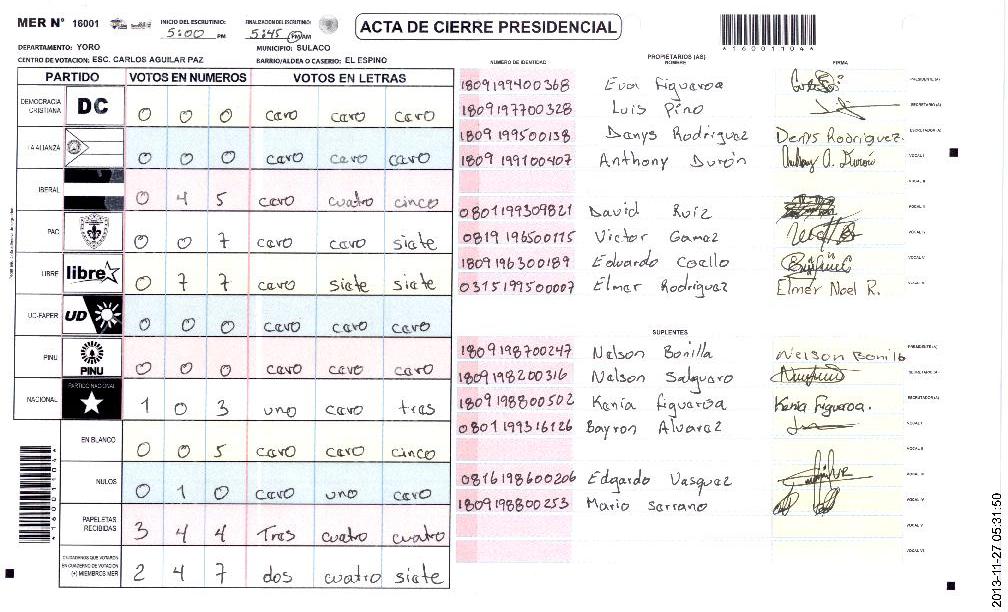 MER N° 16001
INICIO DEL ESCRUTINIO: 5:00 PM
FINALIZACION DEL ESCRUTINIO: 5:45 PM/AM
ACTA DE CIERRE PRESIDENCIAL
*16001104*
DEPARTAMENTO: YORO MUNICIPIO: SULACO
CENTRO DE VOTACION: ESC. CARLOS AGUILAR PAZ BARRIO/ALDEA O CASERIO: EL ESPINO
PARTIDO VOTOS EN NUMEROS VOTOS EN LETRAS
DEMOCRACIA CRISTIANA DC 0 0 0 cero cero cero
LA ALIANZA 0 0 0 cero cero cero
IBERAL 0 4 5 cero cuatro cinco
PAC 0 0 7 cero cero siete
LIBRE libre 0 7 7 cero siete siete
UD-FAPER UD 0 0 0 cero cero cero
PINU PINU 0 0 0 cero cero cero
NACIONAL PARTIDO NACIONAL 1 0 3 uno cero tres
EN BLANCO 0 0 5 cero cero cinco
NULOS 0 1 0 cero uno cero
PAPELETAS RECIBIDAS 3 4 4 Tres cuatro cuatro
CIUDADANOS QUE VOTARON EN CUADERNO DE VOTACION (+) MIEMBROS MER 2 4 7 dos cuatro siete
PROPIETARIOS (AS)
NUMERO DE IDENTIDAD NOMBRE FIRMA
1809199400368 Eva Figueroa PRESIDENTE (A)
1809197700328 Luis Pino SECRETARIO (A)
1809199500138 Danys Rodriguez Denys Rodriguez. ESCRUTADOR (A)
1809199100407 Anthony Durón Anthony A. Durón VOCAL I
VOCAL II
0801199309821 David Ruiz VOCAL III
0819196500115 Victor Gamez VOCAL IV
1809196300189 Eduardo Coello VOCAL V
0315199500007 Elmer Rodriguez Elmer Noel R. VOCAL VI
SUPLENTES
1809198700247 Nelson Bonilla Nelson Bonilla PRESIDENTE (A)
1809198200316 Nelson Salguero SECRETARIO (A)
1809198800502 Kenia Figueroa Kenia Figueroa. ESCRUTADOR (A)
0801199316126 Bayron Alvarez VOCAL I
VOCAL II
0816198600206 Edgardo Vasquez VOCAL III
1809198800253 Mario Serrano VOCAL IV
VOCAL V
VOCAL VI
*16001104*
2013-11-27 05:31:50